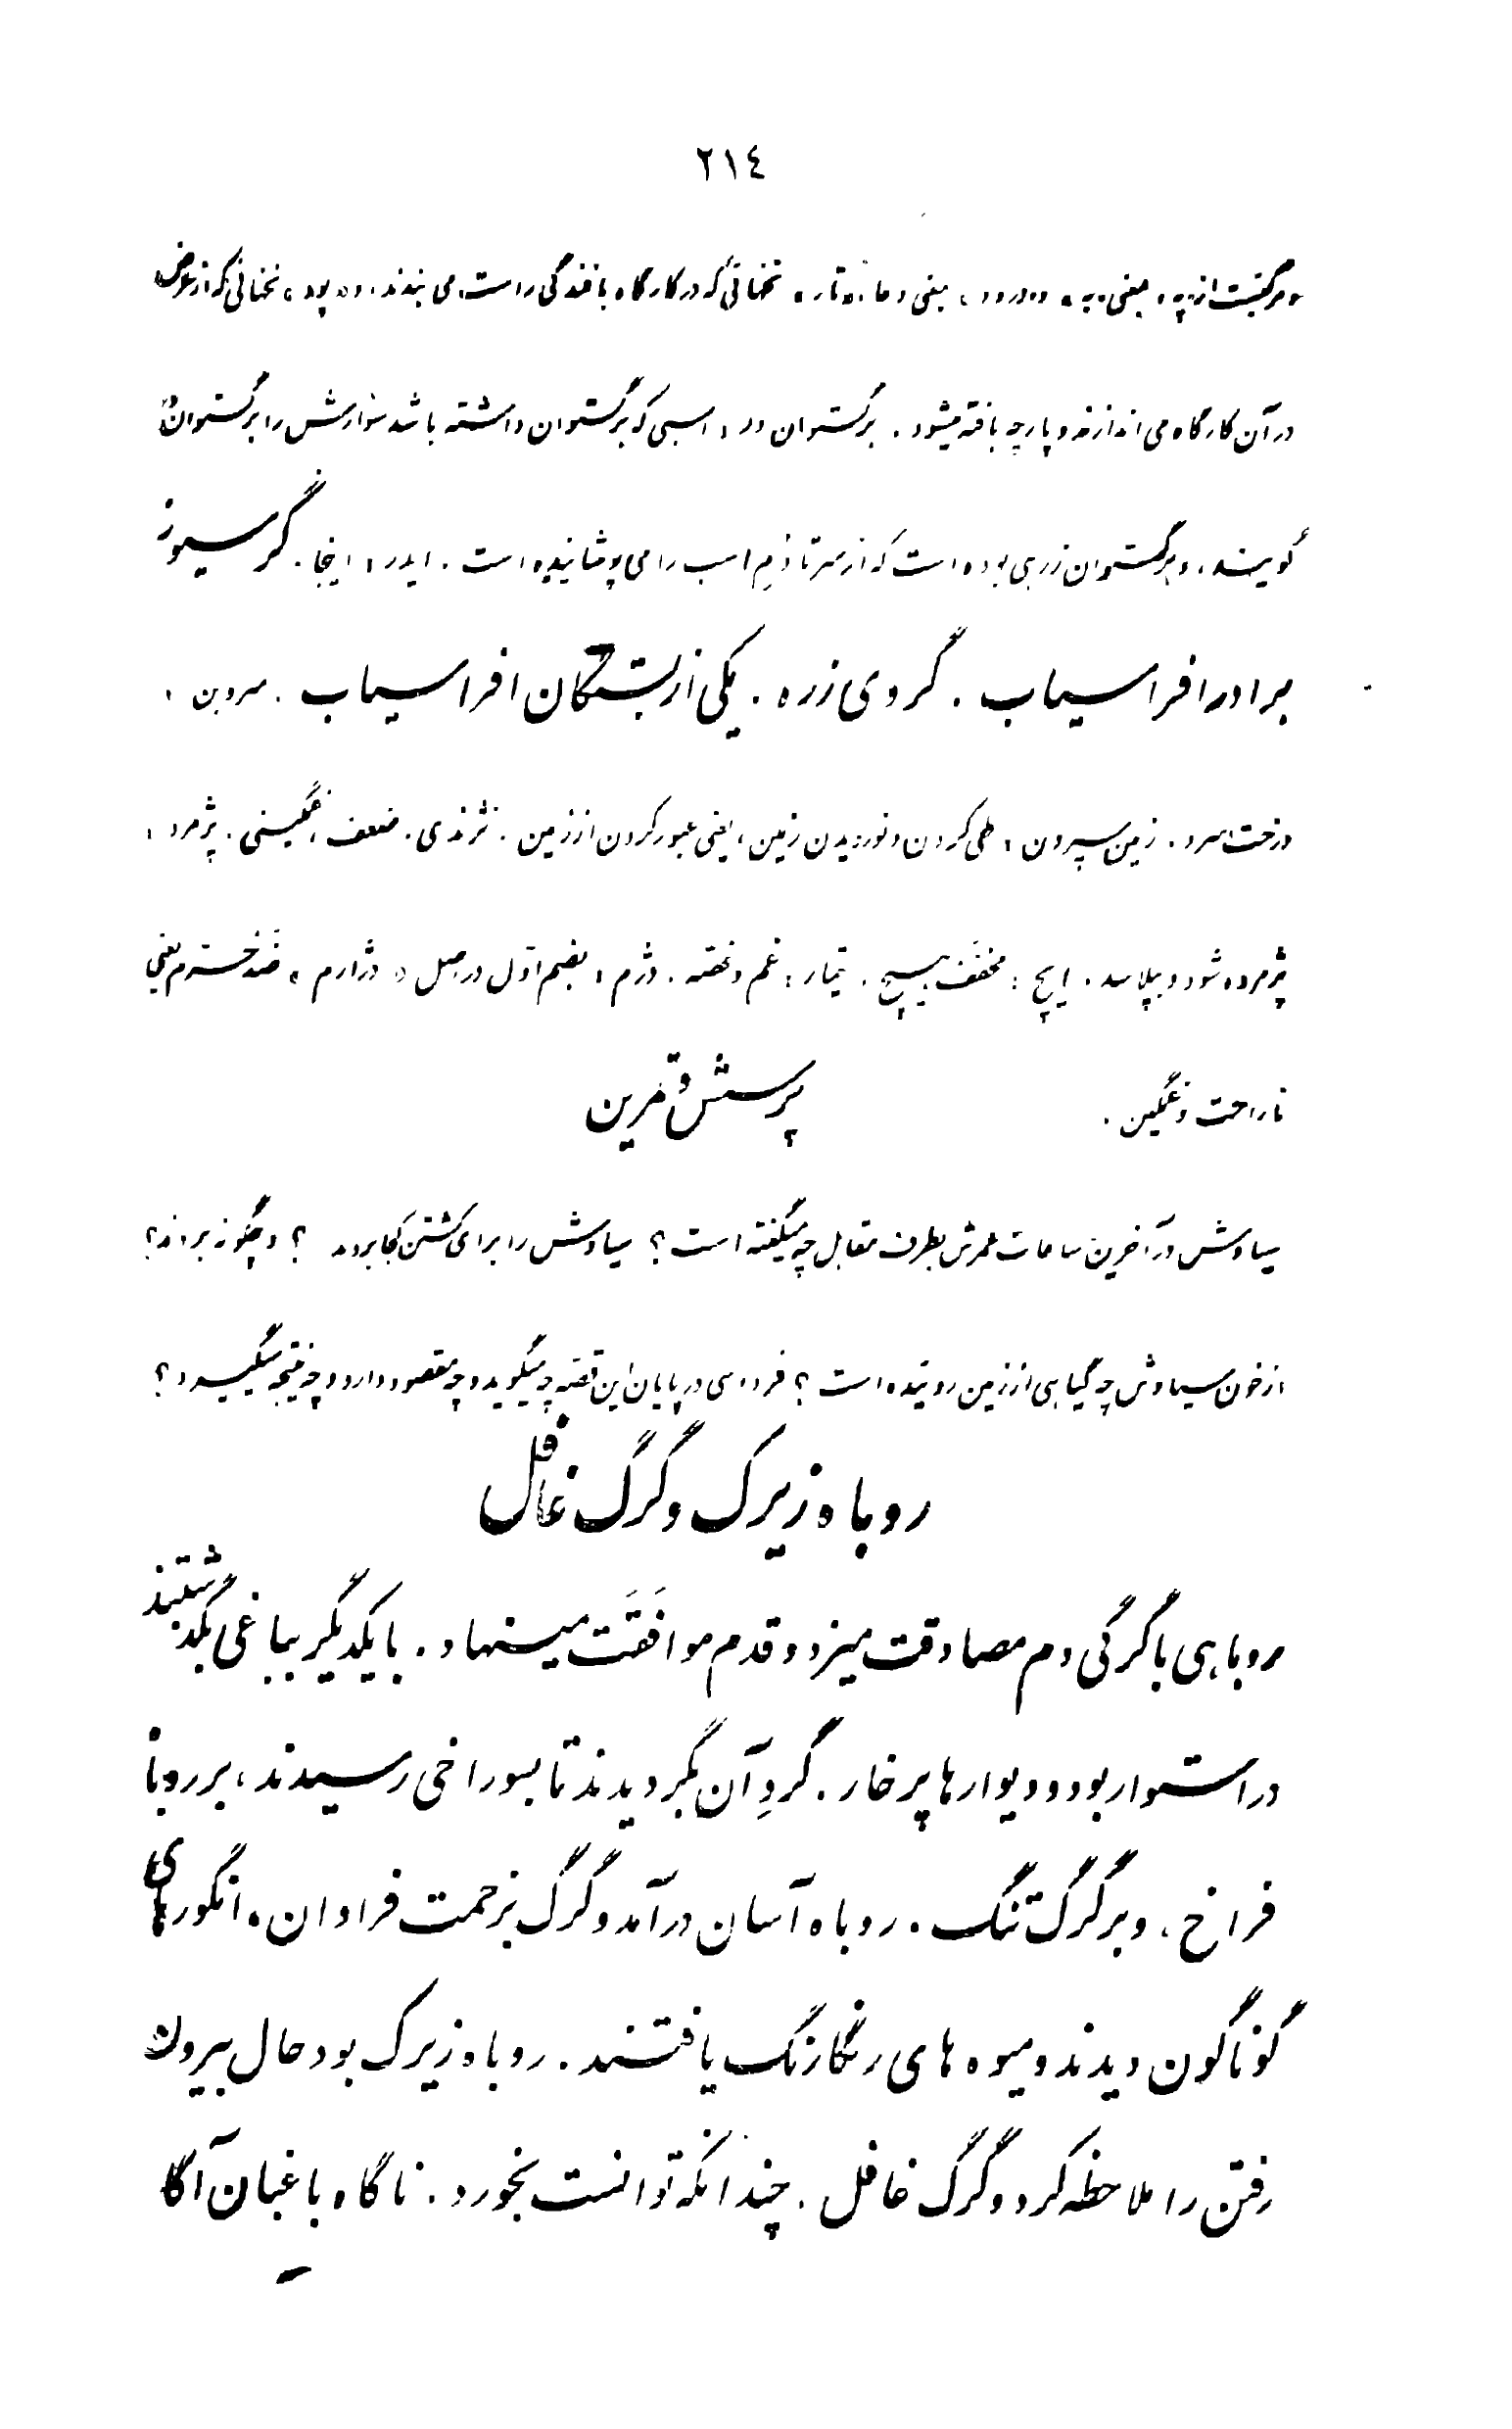 ٢١٤
و مرکبست از «په» بمعنی «به» و «درود» بمعنی دعا. «تار» نخهائی که در کارگاه بافندگی راست می بندند، و «پود» نخهائی که از عرض
در آن کارگاه می اندازند و پارچه بافته میشود. برگستوان ور: اسبی که برگستوان داشته باشد سوارش را برگستوان‌ور
گویند، و برگستوان زرهی بوده است که از سر تا دُم اسب را می پوشانیده است. ایدر: اینجا. گرسیوز
برادر افراسیاب. گروی زره. یکی از بستگان افراسیاب. سروبن:
درخت سرو. زمین سپردن: طی کردن و نوردیدن زمین، یعنی عبور کردن از زمین. نژندی. ضعف، غمگینی. پژمرد:
پژمرده شود و بپلاسد. ایچ: مخفّف هیچ. تیمار: غم و غصّه. دژم: بضم اوّل در اصل «دژارم» ضد خرّم یعنی
ناراحت و غمگین.
پرسش و تمرین
سیاوش در آخرین ساعات عمرش بطرف مقابل چه میگفته است؟ سیاوش را برای کشتن کجا بردند ؟ و چگونه بردند؟
از خون سیاوش چه گیاهی از زمین روئیده است؟ فردوسی در پایان این قصّه چه میگوید و چه مقصود دارد و چه نتیجه میگیرد؟
روباه زیرک و گرگ غافل
روباهی با گرگی دم مصادقت میزد و قدم موافَقَت مینهاد. با یکدیگر بباغی بگذشتند
در استوار بود و دیوارها پرخار. گردِ آن بگردیدند تا بسوراخی رسیدند، بر روباه
فراخ، و بر گرگ تنگ. روباه آسان درآمد و گرگ بزحمت فراوان. انگورهای
گوناگون دیدند و میوه های رنگارنگ یافتند. روباه زیرک بود حال بیرون
رفتن را ملاحظه کرد و گرگ غافل. چندانکه توانست بخورد. ناگاه باغبان آگاه